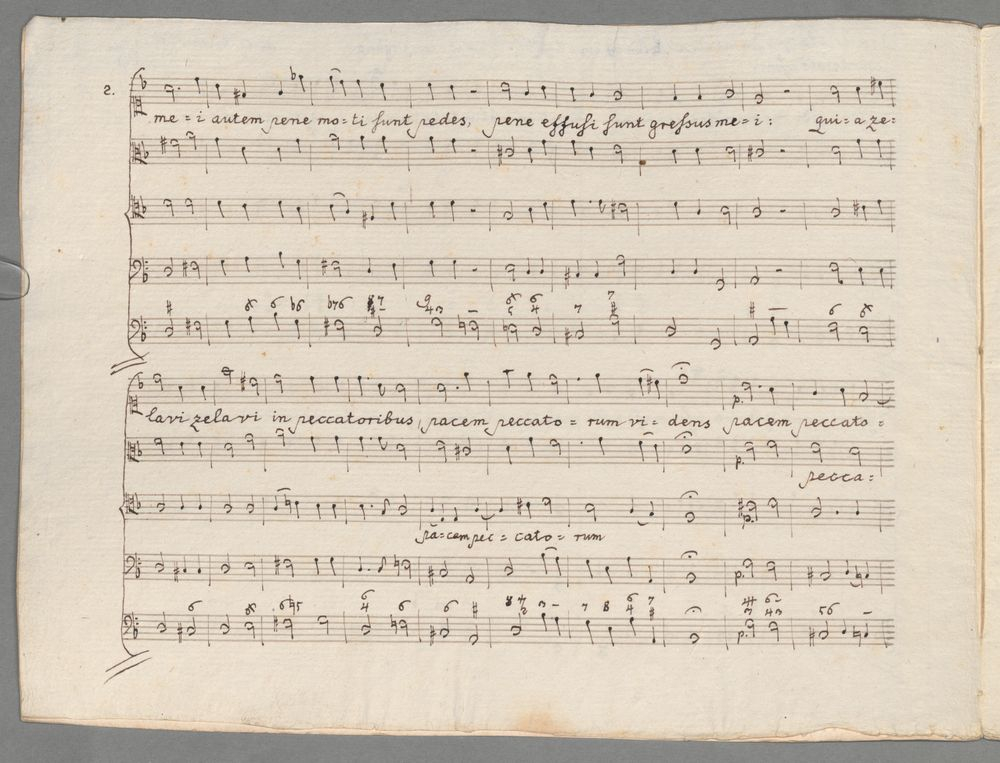 2.
me=i autem pene mo=ti sunt pedes, pene effusi sunt gressus me=i: qui=a ze=
lavi zelavi in peccatoribus, pacem peccato=rum vi=dens pacem peccato=
pecca=
pa=cem pec=cato=rum